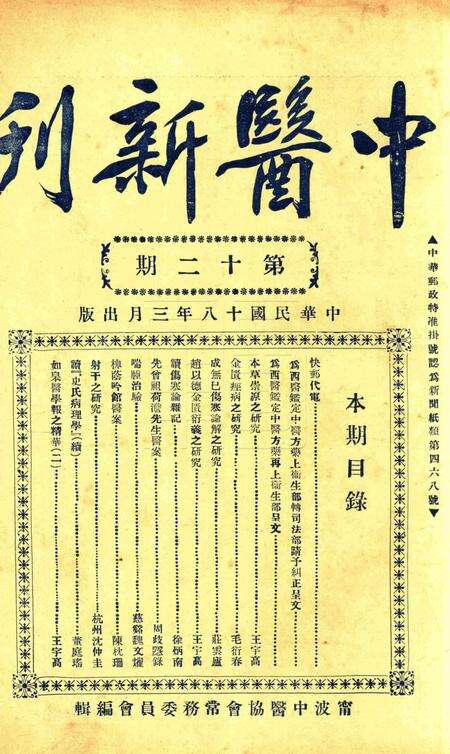 中醫新刊
第十二期
中華民國十八年三月出版
▲中華郵政特准掛號認爲新聞紙類第四六八號▼
本期目錄
快郵代電
爲西醫鑑定中醫方藥上衞生部轉司法部請予糾正呈文
爲西醫鑑定中醫方藥再上衞生部呈文
本草崇原之研究 王宇高
金匱痙病之研究 毛衍春
成無已傷寒論解之研究 莊雲廬
趙以德金匱衍義之研究 王宇高
讀傷寒論雜記 徐炳南
先曾祖荷澹先生醫案 周歧隱錄
喘脹治驗 慈谿魏文燿
梅蔭吟館醫案 陳枕珊
射干之研究 杭州沈仲圭
讀『史氏病理學』(續) 董庭瑤
如皋醫學報之精華(二) 王宇高
甯波中醫協會常務委員會編輯